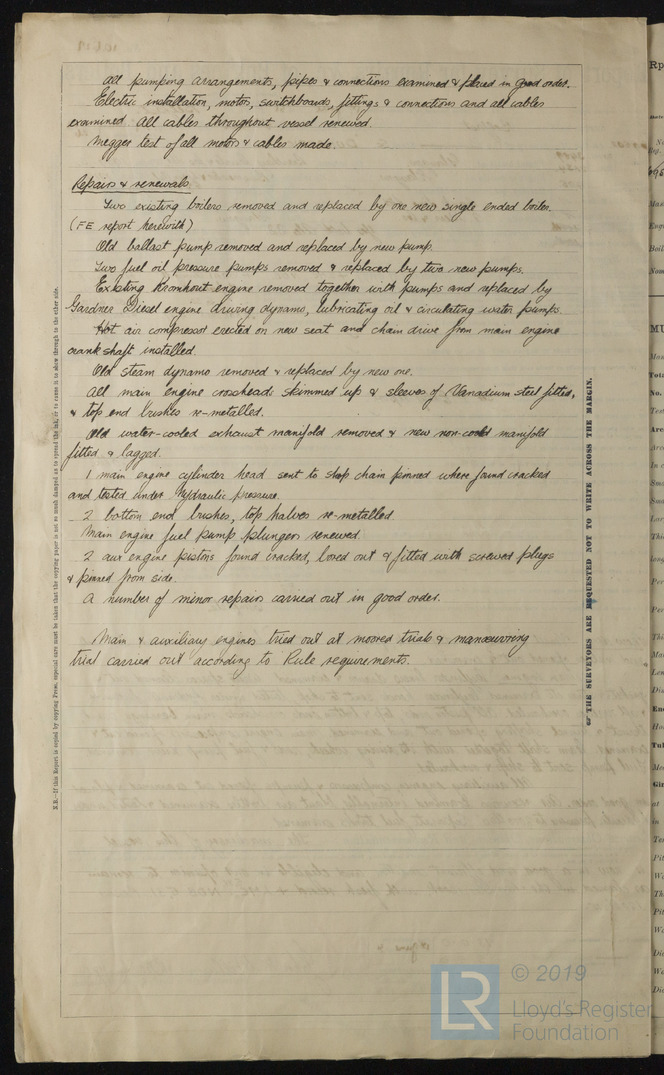 All pumping arrangements, pipes & connections examined & placed in good order.
Electric installation, motors, switchboards, fittings & connections and all cables
examined. All cables throughout vessel renewed.
Megger test of all motors & cables made.
Repairs & renewals
Two existing boilers removed and replaced by one new single ended boiler.
(FE report herewith)
Old ballast pump removed and replaced by new pump.
Two fuel oil pressure pumps removed & replaced by two new pumps.
Existing Kromhout engine removed together with pumps and replaced by
Gardner Diesel engine driving dynamo, lubricating oil & circulating water pumps.
Hot air compressor erected on new seat and chain drive from main engine
crankshaft installed.
Old steam dynamo removed & replaced by new one.
All main engine crossheads skimmed up & sleeves of Vanadium steel fitted,
& top end bushes re-metalled.
Old water-cooled exhaust manifold removed & new non-cooled manifold
fitted & lagged.
1 main engine cylinder head sent to shop chain pinned where found cracked
and tested under hydraulic pressure.
2 bottom end bushes, top halves re-metalled.
Main engine fuel pump plungers renewed.
2 aux engine pistons found cracked, bored out & fitted with screwed plugs
& pinned from side.
A number of minor repairs carried out in good order.
Main & auxiliary engines tried out at moored trials & manœuvring
trial carried out according to Rule requirements.
N.B.—If this Report is copied by copying Press, especial care must be taken that the copying paper is not so much damped as to spread the ink, or to cause it to show through to the other side.
THE SURVEYORS ARE REQUESTED NOT TO WRITE ACROSS THE MARGIN.
LR
© 2019
Lloyd's Register
Foundation